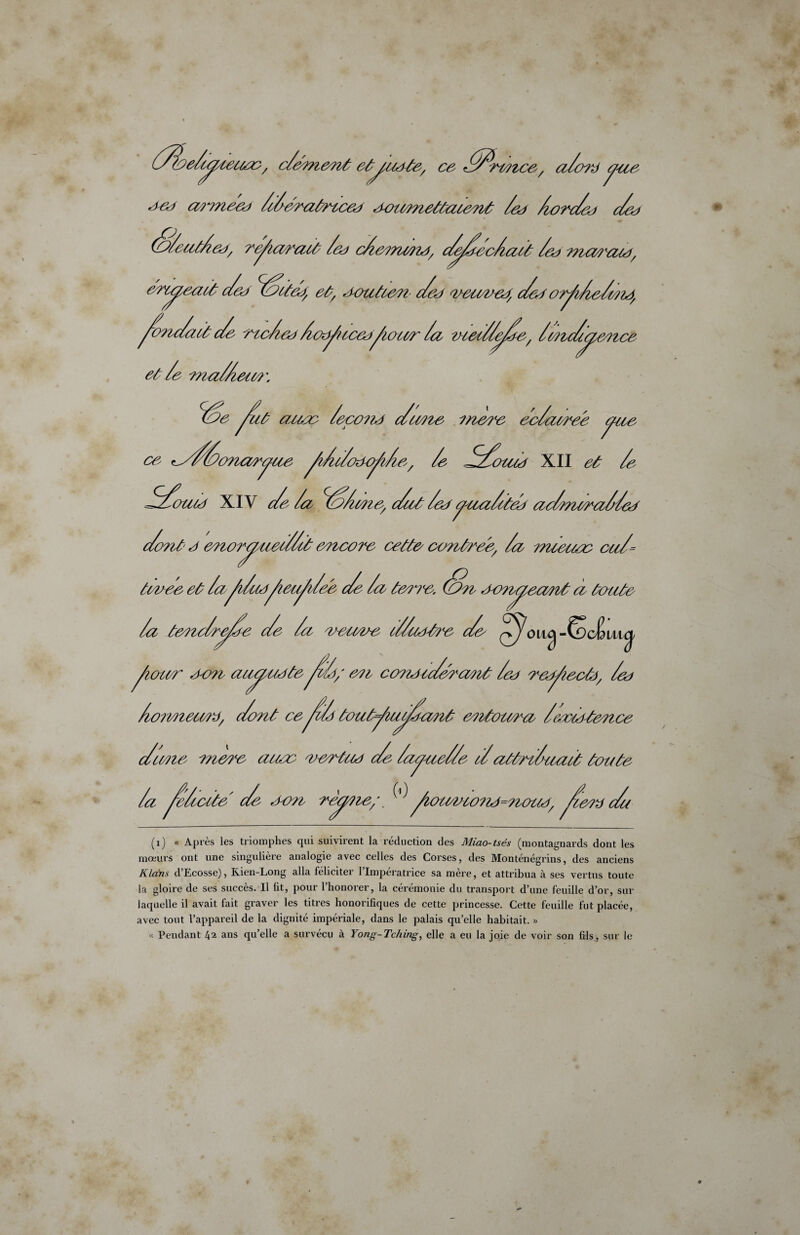 Religieux, clément et juste, ce Prince, alors que
ses armées libératrices soumettaient les hordes des
Eleuthes, réparait les chemins, desséchait les marais,
érigeait des Cités, et, soutien des veuves, des orphelins,
fondait de riches hospices pour la vieillesse, l'indigence
et le malheur.
Ce fut aux leçons d'une mère éclairée que
ce Monarque philosophe, le Louis XII et le
Louis XIV de la Chine, dut les qualités admirables
dont s'enorgueillit encore cette contrée, la mieux cul=
tivée et la plus peuplée de la terre. En songeant à toute
la tendresse de la veuve illustre de Yong-Tching
pour son auguste fils; en considérant les respects, les
honneurs, dont ce fils tout-puissant entoura l'existence
d'une mère aux vertus de laquelle il attribuait toute
la félicité de son règne; (1) pouvions=nous, fiers du
(1) « Après les triomphes qui suivirent la réduction des Miao-tsés (montagnards dont les
mœurs ont une singulière analogie avec celles des Corses, des Monténégrins, des anciens
Klans d'Ecosse), Kien-Long alla féliciter l'Impératrice sa mère, et attribua à ses vertus toute
la gloire de ses succès. Il fit, pour l'honorer, la cérémonie du transport d'une feuille d'or, sur
laquelle il avait fait graver les titres honorifiques de cette princesse. Cette feuille fut placée,
avec tout l'appareil de la dignité impériale, dans le palais qu'elle habitait. »
« Pendant 42 ans qu'elle a survécu à Yong-Tching, elle a eu la joie de voir son fils, sur le